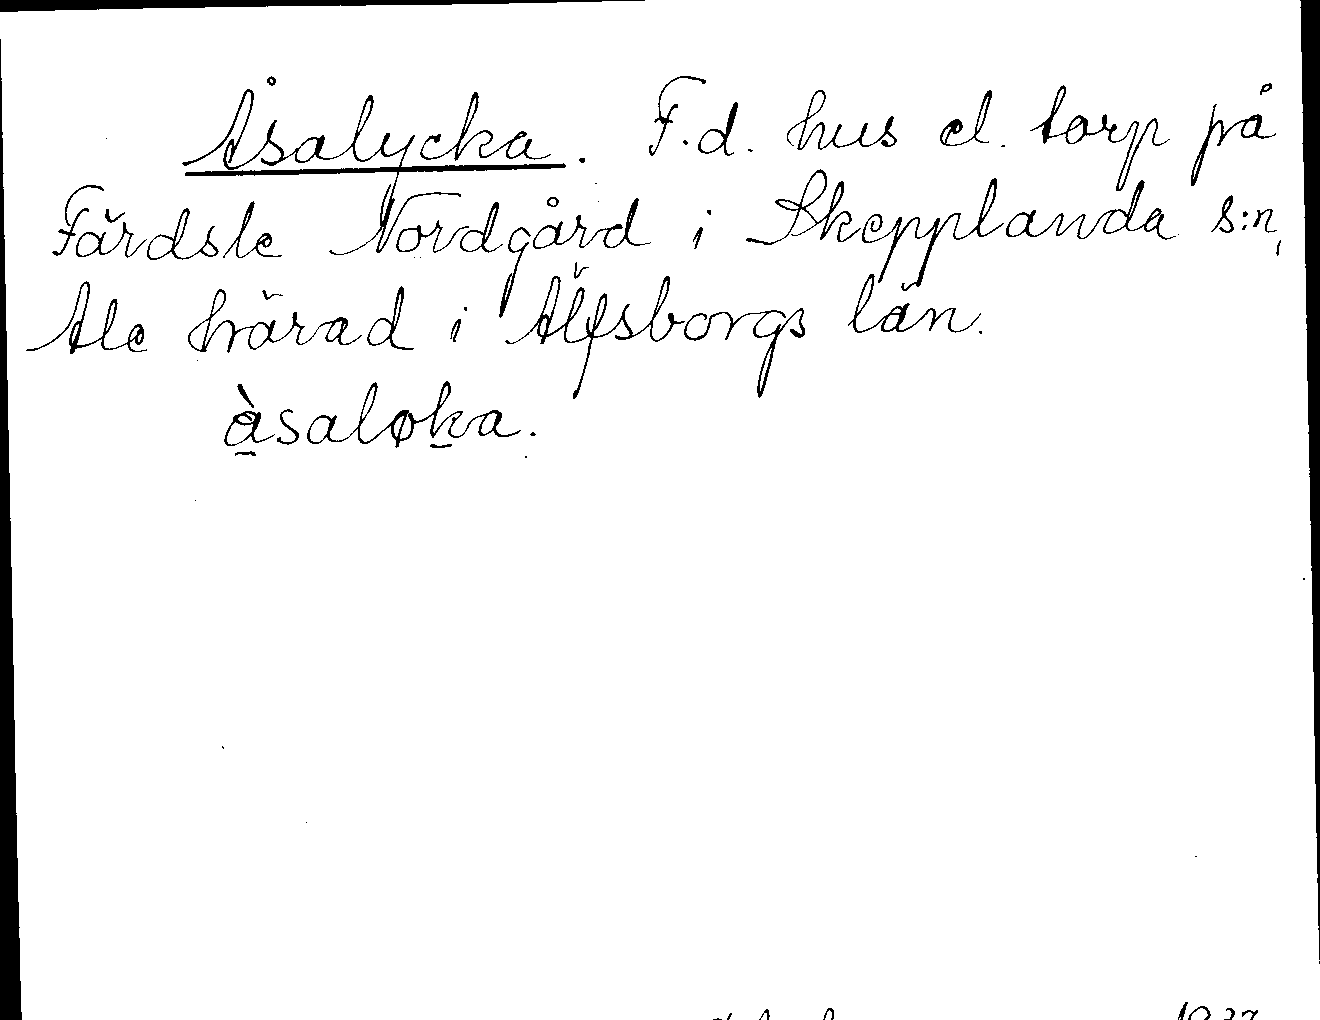 Åsalycka. F.d. hus el. torp på
Färdsle Nordgård i Skepplanda s:n,
Ale härad i Älfsborgs län.
àsaløka.